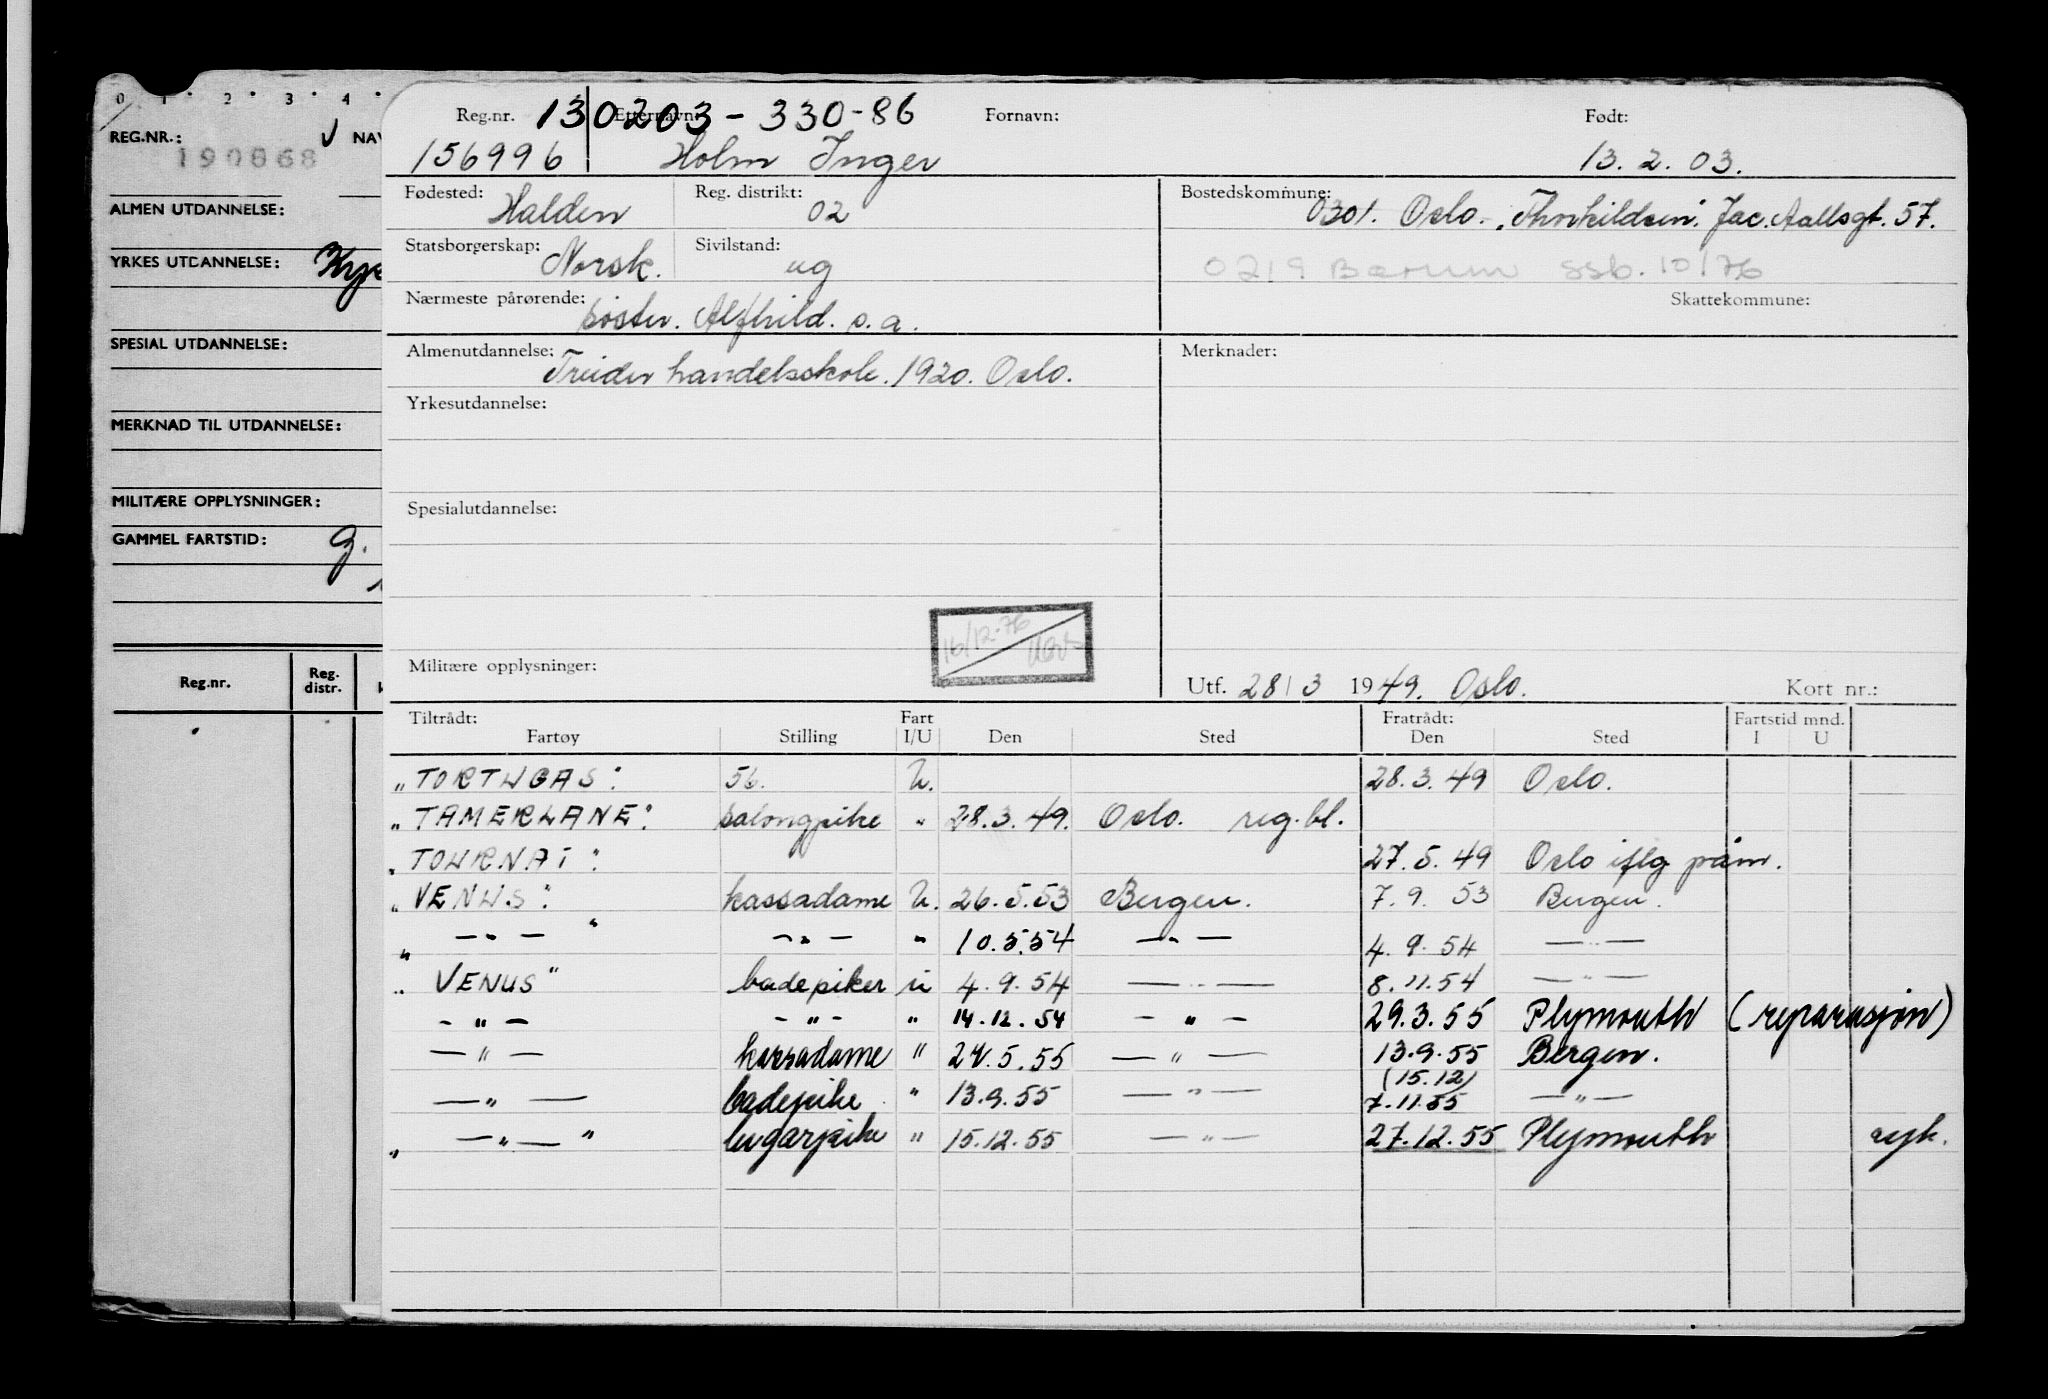 0 1 2 3 4
REG.NR.: V NAV
190868
ALMEN UTDANNELSE:
YRKES UTDANNELSE:
SPESIAL UTDANNELSE:
MERKNAD TIL UTDANNELSE:
MILITÆRE OPPLYSNINGER:
GAMMEL FARTSTID: g.
Reg.nr. Reg. distr.
Reg.nr. 130203-330-86 Etternavn: Fornavn: Født:
156996 Holm Inger 13.2.03.
Fødested: Halden Reg. distrikt: 02 Bostedskommune: 0301. Oslo. "Thorkildsen". Jac. Aallsgt. 57.
Statsborgerskap: Norsk. Sivilstand: ug 0219 Bærum ssb. 10/76
Nærmeste pårørende: søster. Alfhild. s.a. Skattekommune:
Almenutdannelse: Treider handelsskole. 1920. Oslo. Merknader:
Yrkesutdannelse:
Spesialutdannelse:
16/12-76
Militære opplysninger: Utf. 28/3 1949. Oslo. Kort nr.:
Tiltrådt: Fart Fratrådt: Fartstid mnd.
Fartøy Stilling I/U Den Sted Den Sted I U
"TORTUGAS" 56. U. 28.3.49 Oslo.
"TAMERLANE" salongpike " 28.3.49. Oslo. reg.bl.
"TOURNAI" 27.5.49 Oslo iflg påm.
"VENUS" kassadame U. 26.5.53 Bergen. 7.9.53 Bergen.
" —"— " —"— " 10.5.54 —"— 4.9.54 —"—
"VENUS" badepiker u 4.9.54 —"— 8.11.54 —"—
—"— —"— " 14.12.54 —"— 29.3.55 Plymouth (reparasjon)
—"— kassadame " 24.5.55 —"— 13.9.55 Bergen.
(15.12)
—"— badepike " 13.9.55 —"— 7.11.55 —"—
" —"— " lugarpike " 15.12.55 —"— 27.12.55 Plymouth syk.